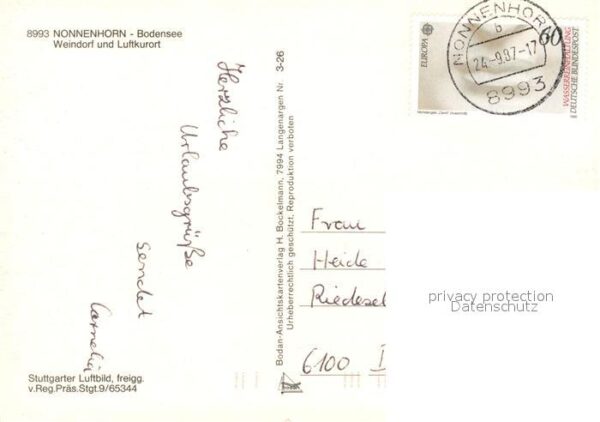 8993 NONNENHORN - Bodensee
Weindorf und Luftkurort
Herzliche
Urlaubsgrüße
sendet
Cornelia
Stuttgarter Luftbild, freigg.
v.Reg.Präs.Stgt.9/65344
Bodan-Ansichtskartenverlag H. Bockelmann, 7994 Langenargen Nr. 3-26
Urheberrechtlich geschützt. Reproduktion verboten
EUROPA
60
WASSERREINHALTUNG
DEUTSCHE BUNDESPOST
NONNENHORN
b
24.-9.87-17
8993
Frau
Heide
Riedesel
6100
privacy protection
Datenschutz